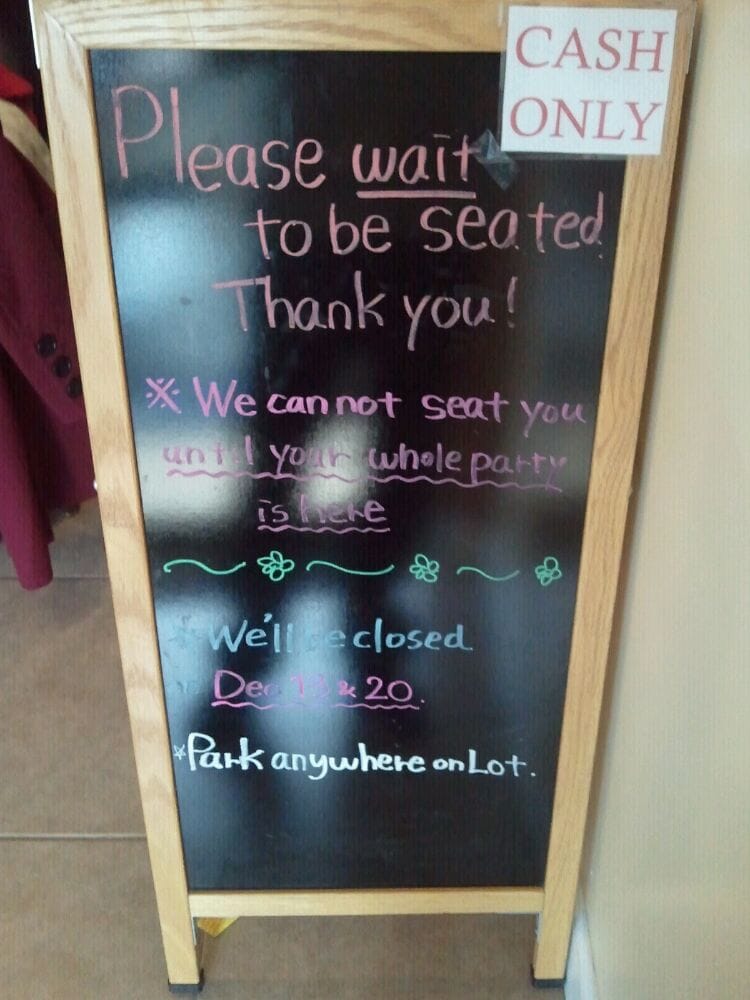 CASH
ONLY
Please wait
to be seated
Thank you!
※ We can not seat you
until your whole party
is here
We'll be closed
Dec 13 & 20.
*Park anywhere on Lot.